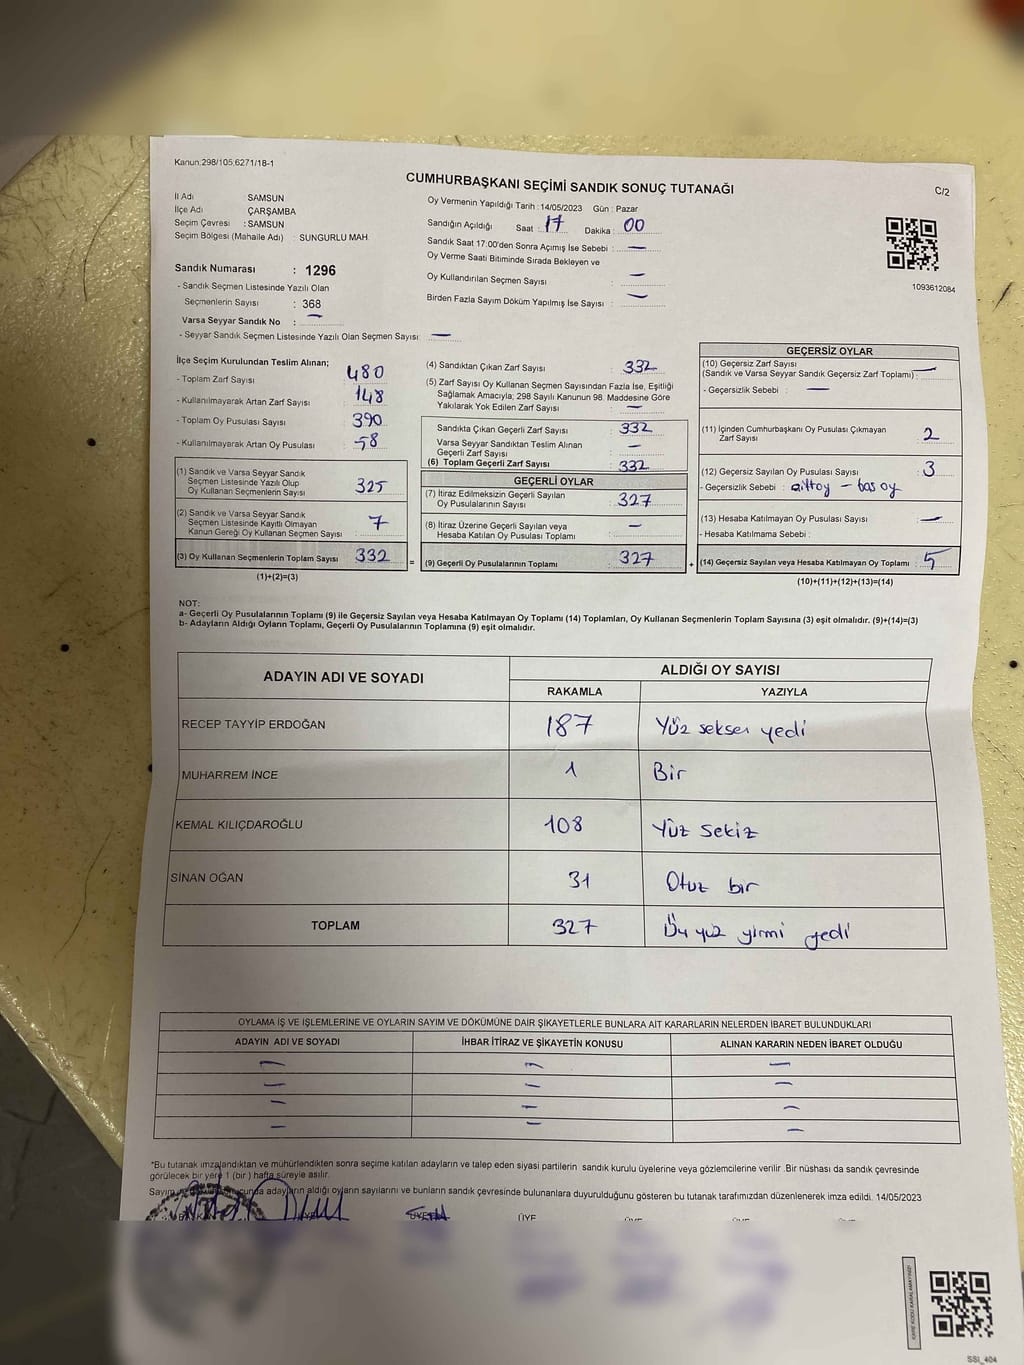 Kanun.298/105.6271/18-1
CUMHURBAŞKANI SEÇİMİ SANDIK SONUÇ TUTANAĞI
C/2
İl Adı SAMSUN
İlçe Adı ÇARŞAMBA
Seçim Çevresi : SAMSUN
Seçim Bölgesi (Mahalle Adı) : SUNGURLU MAH
Oy Vermenin Yapıldığı Tarih : 14/05/2023 Gün : Pazar
Sandığın Açıldığı Saat : 17 Dakika : 00
Sandık Saat 17:00'den Sonra Açımış İse Sebebi : —
Oy Verme Saati Bitiminde Sırada Bekleyen ve
Oy Kullandırılan Seçmen Sayısı : —
Birden Fazla Sayım Döküm Yapılmış İse Sayısı : —
1093612084
Sandık Numarası : 1296
- Sandık Seçmen Listesinde Yazılı Olan
Seçmenlerin Sayısı : 368
Varsa Seyyar Sandık No : —
- Seyyar Sandık Seçmen Listesinde Yazılı Olan Seçmen Sayısı : —
İlçe Seçim Kurulundan Teslim Alınan;
- Toplam Zarf Sayısı : 480
- Kullanılmayarak Artan Zarf Sayısı : 148
- Toplam Oy Pusulası Sayısı : 390
- Kullanılmayarak Artan Oy Pusulası : 58
(1) Sandık ve Varsa Seyyar Sandık
Seçmen Listesinde Yazılı Olup
Oy Kullanan Seçmenlerin Sayısı : 325
(2) Sandık ve Varsa Seyyar Sandık
Seçmen Listesinde Kayıtlı Olmayan
Kanun Gereği Oy Kullanan Seçmen Sayısı : 7
(3) Oy Kullanan Seçmenlerin Toplam Sayısı : 332
(1)+(2)=(3)
(4) Sandıktan Çıkan Zarf Sayısı : 332
(5) Zarf Sayısı Oy Kullanan Seçmen Sayısından Fazla İse, Eşitliği
Sağlamak Amacıyla; 298 Sayılı Kanunun 98. Maddesine Göre
Yakılarak Yok Edilen Zarf Sayısı : —
Sandıkta Çıkan Geçerli Zarf Sayısı : 332
Varsa Seyyar Sandıktan Teslim Alınan
Geçerli Zarf Sayısı : —
(6) Toplam Geçerli Zarf Sayısı : 332
GEÇERLİ OYLAR
(7) İtiraz Edilmeksizin Geçerli Sayılan
Oy Pusulalarının Sayısı : 327
(8) İtiraz Üzerine Geçerli Sayılan veya
Hesaba Katılan Oy Pusulası Toplamı : —
= (9) Geçerli Oy Pusulalarının Toplamı : 327 +
GEÇERSİZ OYLAR
(10) Geçersiz Zarf Sayısı
(Sandık ve Varsa Seyyar Sandık Geçersiz Zarf Toplamı) : —
- Geçersizlik Sebebi : —
(11) İçinden Cumhurbaşkanı Oy Pusulası Çıkmayan
Zarf Sayısı : 2
(12) Geçersiz Sayılan Oy Pusulası Sayısı : 3
- Geçersizlik Sebebi : çift oy — boş oy
(13) Hesaba Katılmayan Oy Pusulası Sayısı : —
- Hesaba Katılmama Sebebi :
(14) Geçersiz Sayılan veya Hesaba Katılmayan Oy Toplamı : 5
(10)+(11)+(12)+(13)=(14)
NOT:
a- Geçerli Oy Pusulalarının Toplamı (9) ile Geçersiz Sayılan veya Hesaba Katılmayan Oy Toplamı (14) Toplamları, Oy Kullanan Seçmenlerin Toplam Sayısına (3) eşit olmalıdır. (9)+(14)=(3)
b- Adayların Aldığı Oyların Toplamı, Geçerli Oy Pusulalarının Toplamına (9) eşit olmalıdır.
ADAYIN ADI VE SOYADI ALDIĞI OY SAYISI
RAKAMLA YAZIYLA
RECEP TAYYİP ERDOĞAN 187 Yüz seksen yedi
MUHARREM İNCE 1 Bir
KEMAL KILIÇDAROĞLU 108 Yüz sekiz
SİNAN OĞAN 31 Otuz bir
TOPLAM 327 Üç yüz yirmi yedi
OYLAMA İŞ VE İŞLEMLERİNE VE OYLARIN SAYIM VE DÖKÜMÜNE DAİR ŞİKAYETLERLE BUNLARA AİT KARARLARIN NELERDEN İBARET BULUNDUKLARI
ADAYIN ADI VE SOYADI İHBAR İTİRAZ VE ŞİKAYETİN KONUSU ALINAN KARARIN NEDEN İBARET OLDUĞU
— — —
— — —
— — —
— — —
*Bu tutanak imzalandıktan ve mühürlendikten sonra seçime katılan adayların ve talep eden siyasi partilerin sandık kurulu üyelerine veya gözlemcilerine verilir .Bir nüshası da sandık çevresinde
görülecek bir yere 1 (bir ) hafta süreyle asılır.
Sayım adayların aldığı oyların sayılarını ve bunların sandık çevresinde bulunanlara duyurulduğunu gösteren bu tutanak tarafımızdan düzenlenerek imza edildi. 14/05/2023
ÜYE
SSI_404